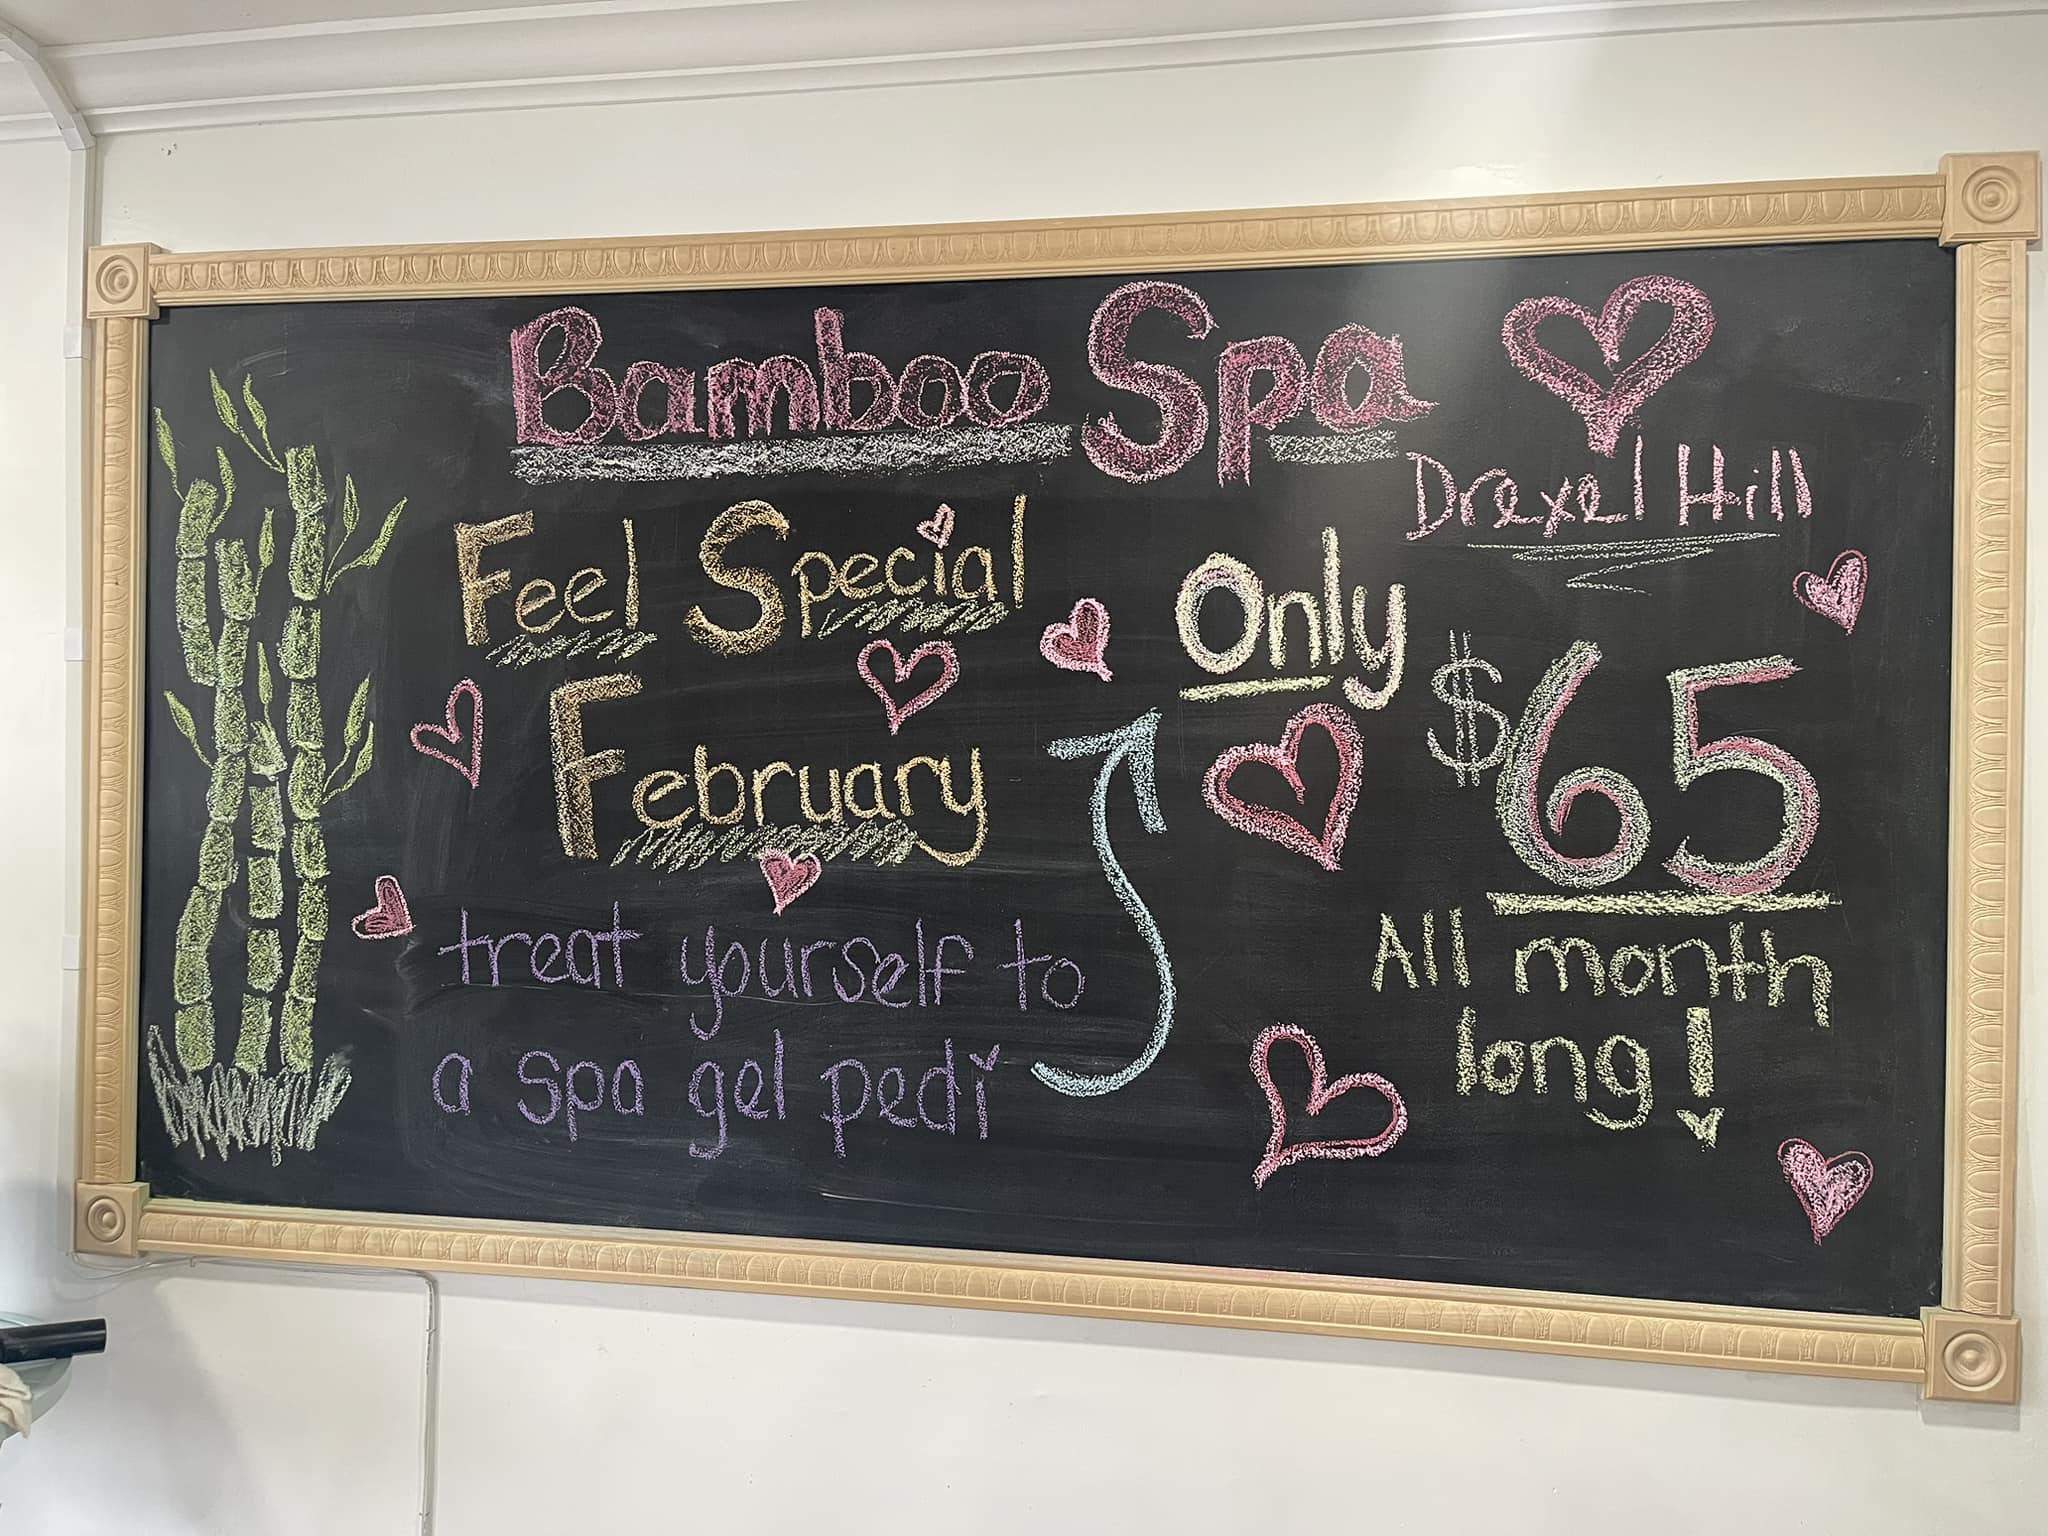 Bamboo Spa
Drexel Hill
Feel Special
February
treat yourself to
a spa gel pedi
Only
$65
All month
long!